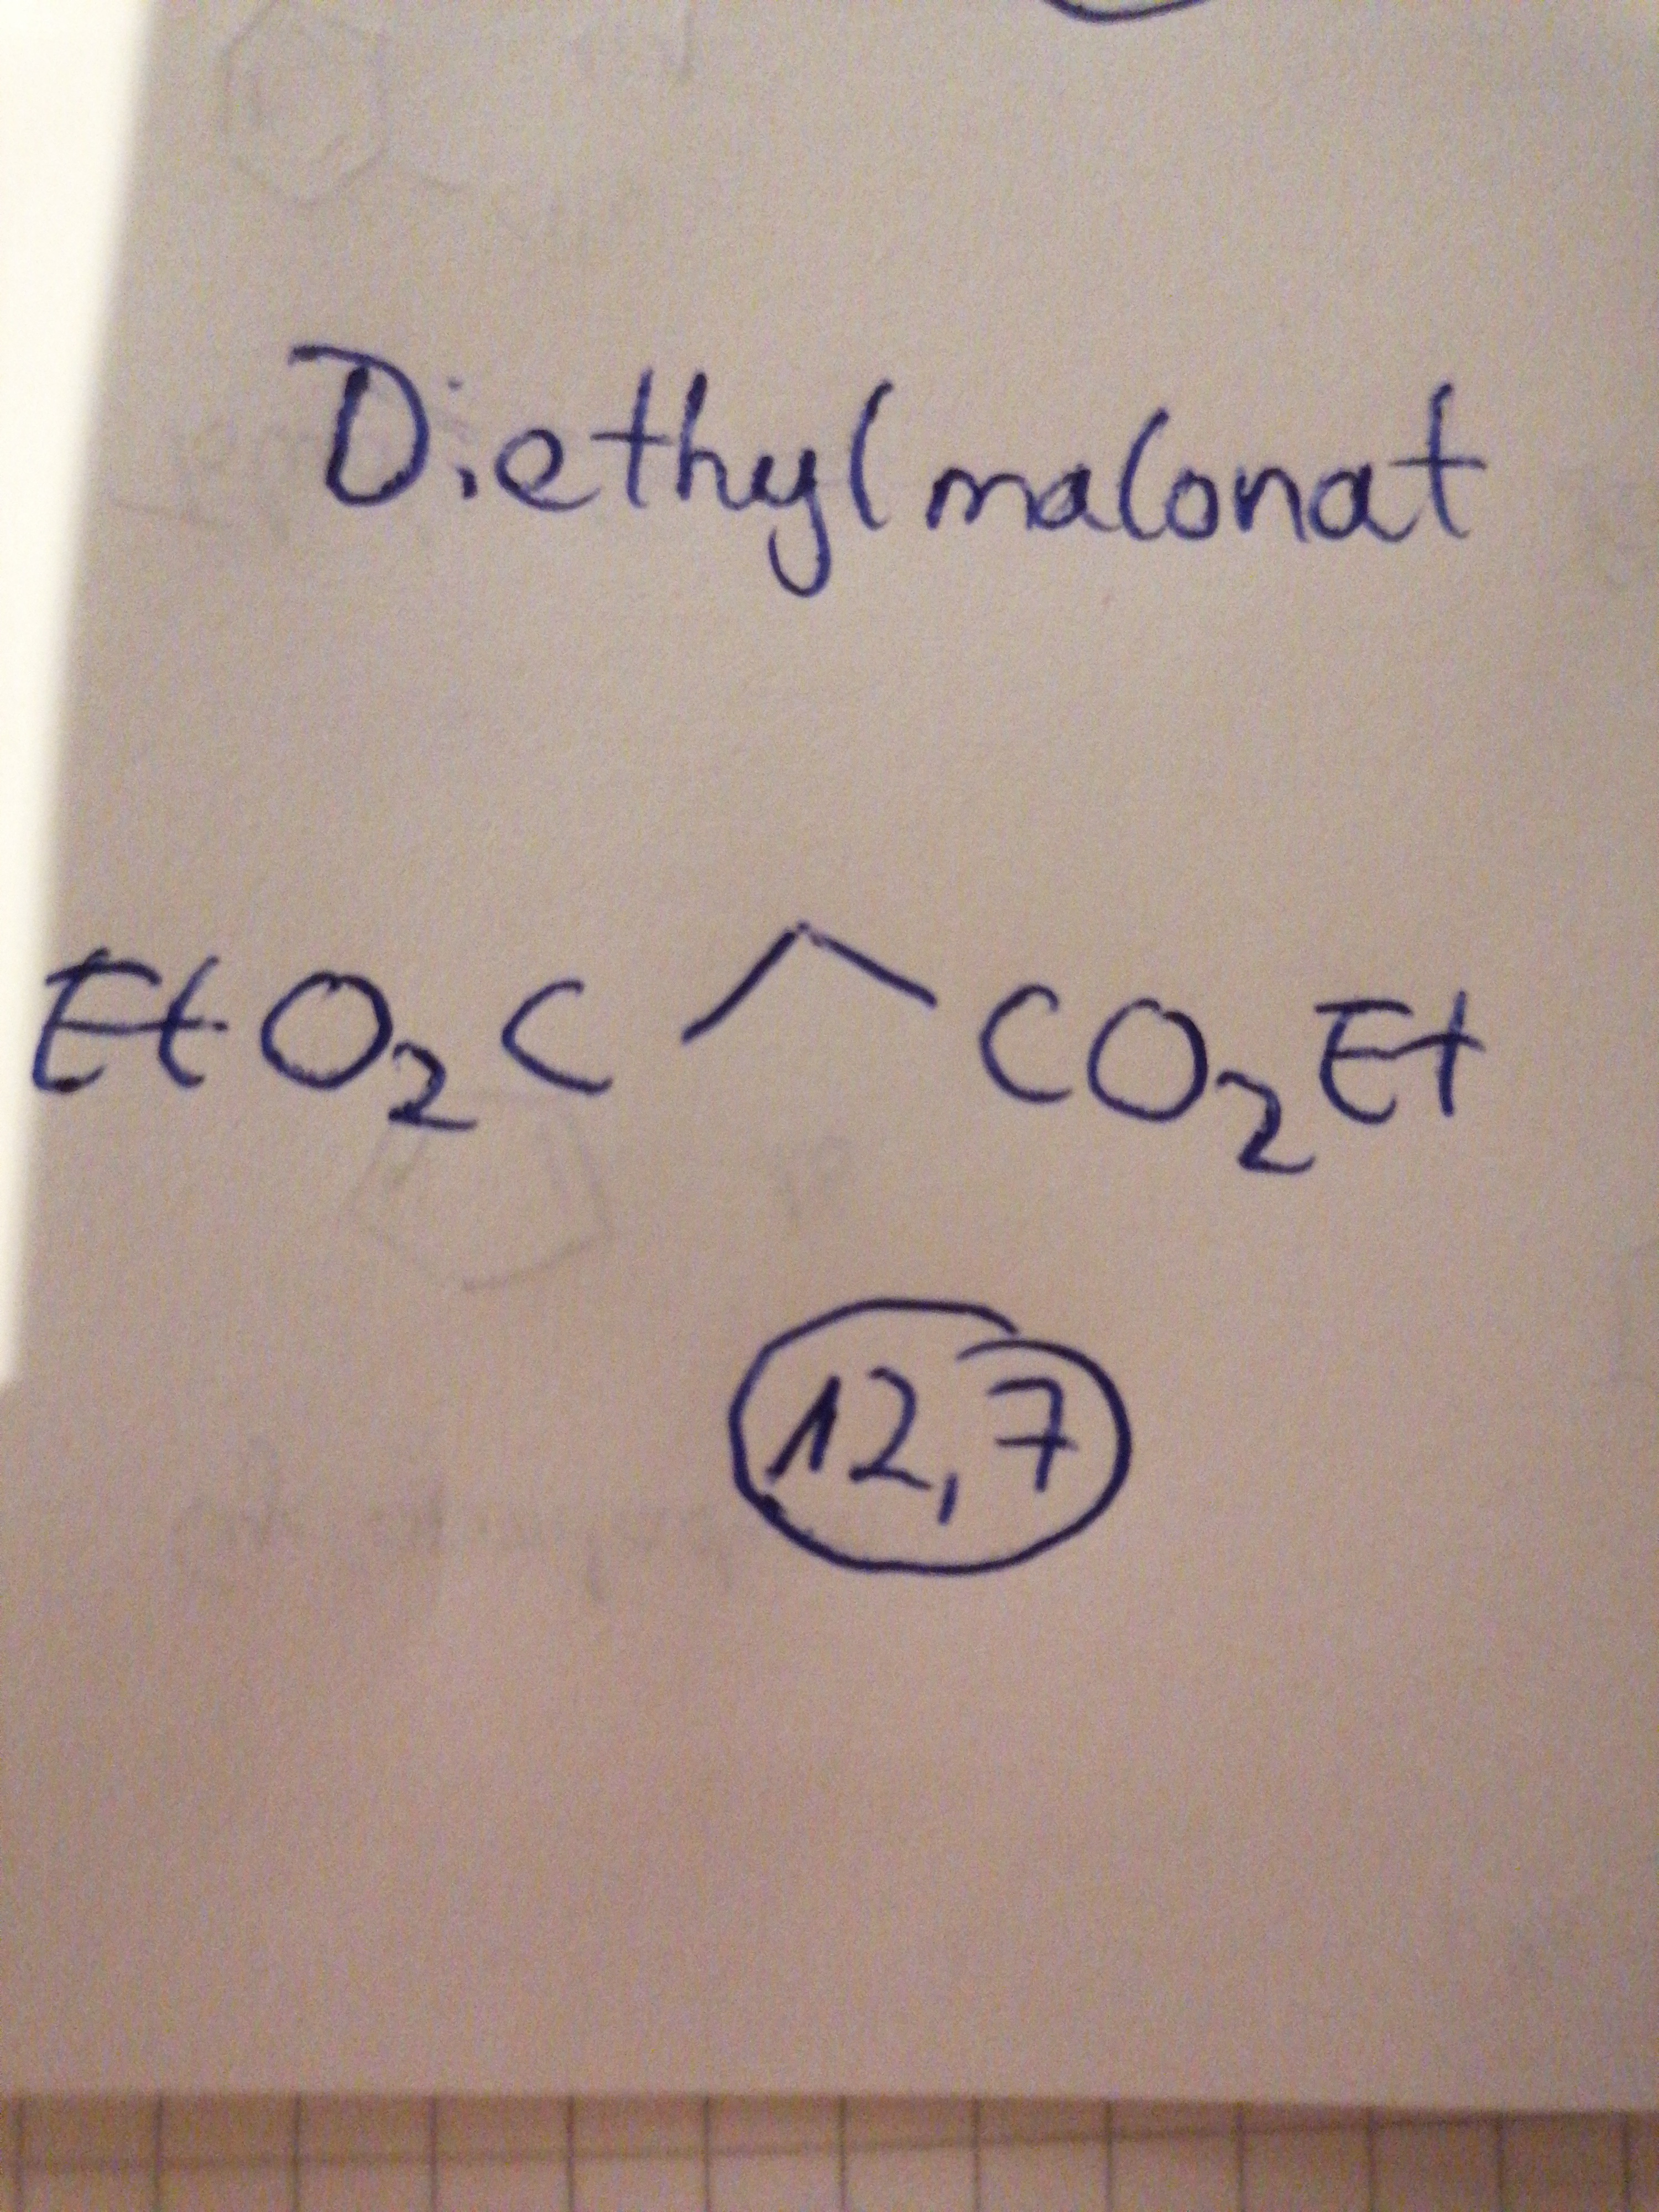 Diethylmalonat
EtO₂C CO₂Et
12,7